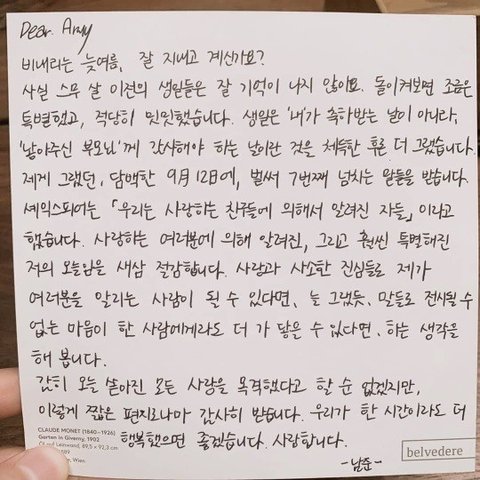 Dear. Army
비내리는 늦여름, 잘 지내고 계신가요?
사실 스무 살 이전의 생일들은 잘 기억이 나지 않아요. 돌이켜보면 조금은
특별했고, 적당히 밋밋했습니다. 생일은 '내'가 축하받는 날이 아니라,
'낳아주신 부모님'께 감사해야 하는 날이란 것을 체득한 후론 더 그랬습니다.
제게 그랬던, 담백한 9월 12일에, 벌써 7번째 넘치는 말들을 받습니다.
셰익스피어는 「우리는 사랑하는 친구들에 의해서 알려진 자들」이라고
했습니다. 사랑하는 여러분에 의해 알려진, 그리고 훨씬 특별해진
저의 오늘임을 새삼 절감합니다. 사랑과 사소한 진심들로 제가
여러분을 알리는 사람이 될 수 있다면, 늘 그랬듯, 말들로 전시될 수
없는 마음이 한 사람에게라도 더 가 닿을 수 있다면, 하는 생각을
해 봅니다.
감히 오늘 쏟아진 모든 사랑을 목격했다고 할 순 없겠지만,
이렇게 짧은 편지로나마 감사히 받습니다. 우리가 한 시간이라도 더
행복했으면 좋겠습니다. 사랑합니다.
-남준-
CLAUDE MONET (1840–1926)
Garten in Giverny, 1902
Öl auf Leinwand, 89,5 x 92,3 cm
Wien.
belvedere